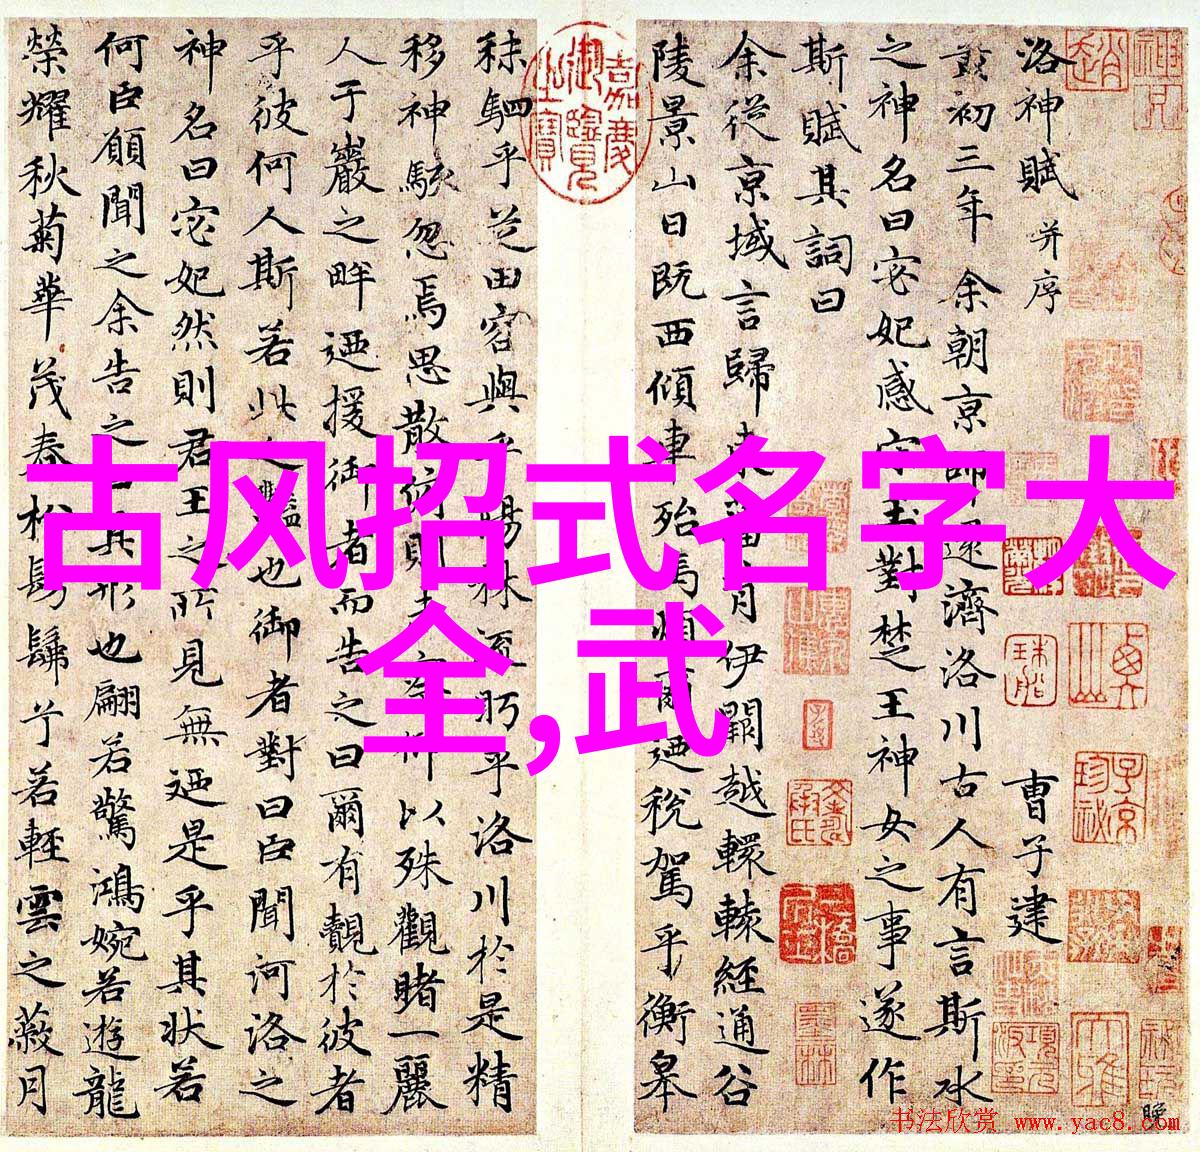 洛神賦 并序
曹子建
黃初三年余朝京師還濟洛川古人有言斯水
之神名曰宓妃感宋玉對楚王神女之事遂作
斯賦其詞曰
余從京域言歸東藩背伊闕越轘轅經通谷
陵景山日既西傾車殆馬煩爾迺稅駕乎蘅皋
秣駟乎芝田容與乎陽林流眄乎洛川於是精
移神駭忽焉思散俯則未察仰以殊觀睹一麗
人于巖之畔迺援御者而告之曰爾有覿於彼者
乎彼何人斯若此之豔也御者對曰臣聞河洛之
神名曰宓妃然則君王之所見無迺是乎其狀若
何臣願聞之余告之曰其形也翩若驚鴻婉若遊龍
榮耀秋菊華茂春松髣髴兮若輕雲之蔽月
嘉慶御覽之寶
古风招式名字大
全,武
书法欣赏 www.yac8.com